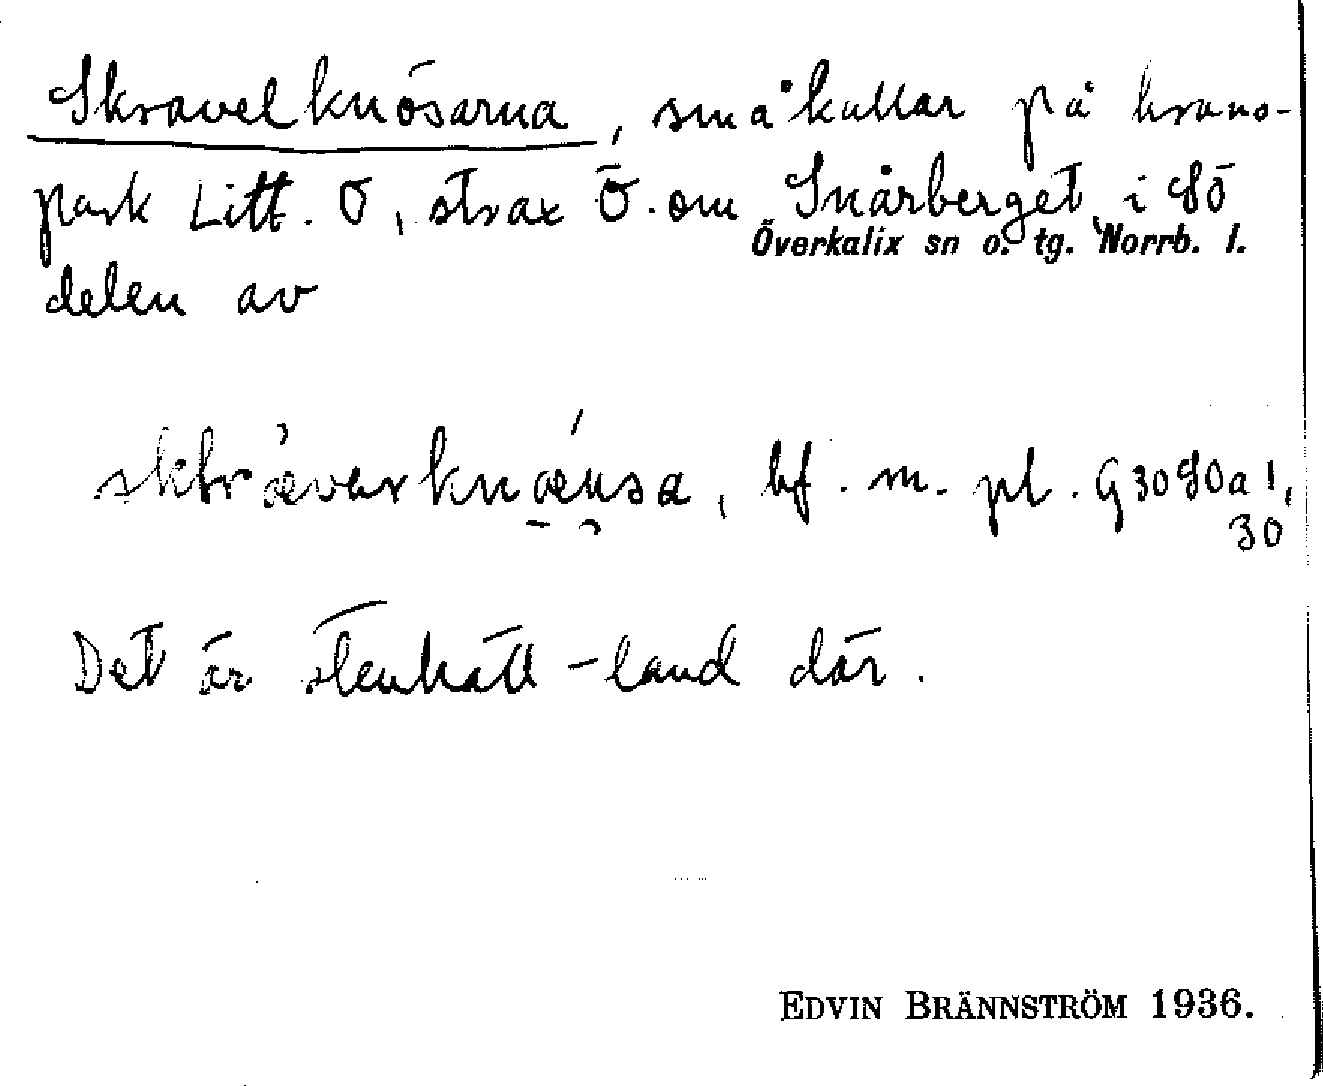 Skravelknösarna, småkullar på krono-
park Litt. O, strax Ö. om Snårberget i SÖ
Överkalix sn o. tg. Norrb. l.
delen av
bf. m. pl. G3080a1,
30
Det är stenhåll-land där.
EDVIN BRÄNNSTRÖM 1936.